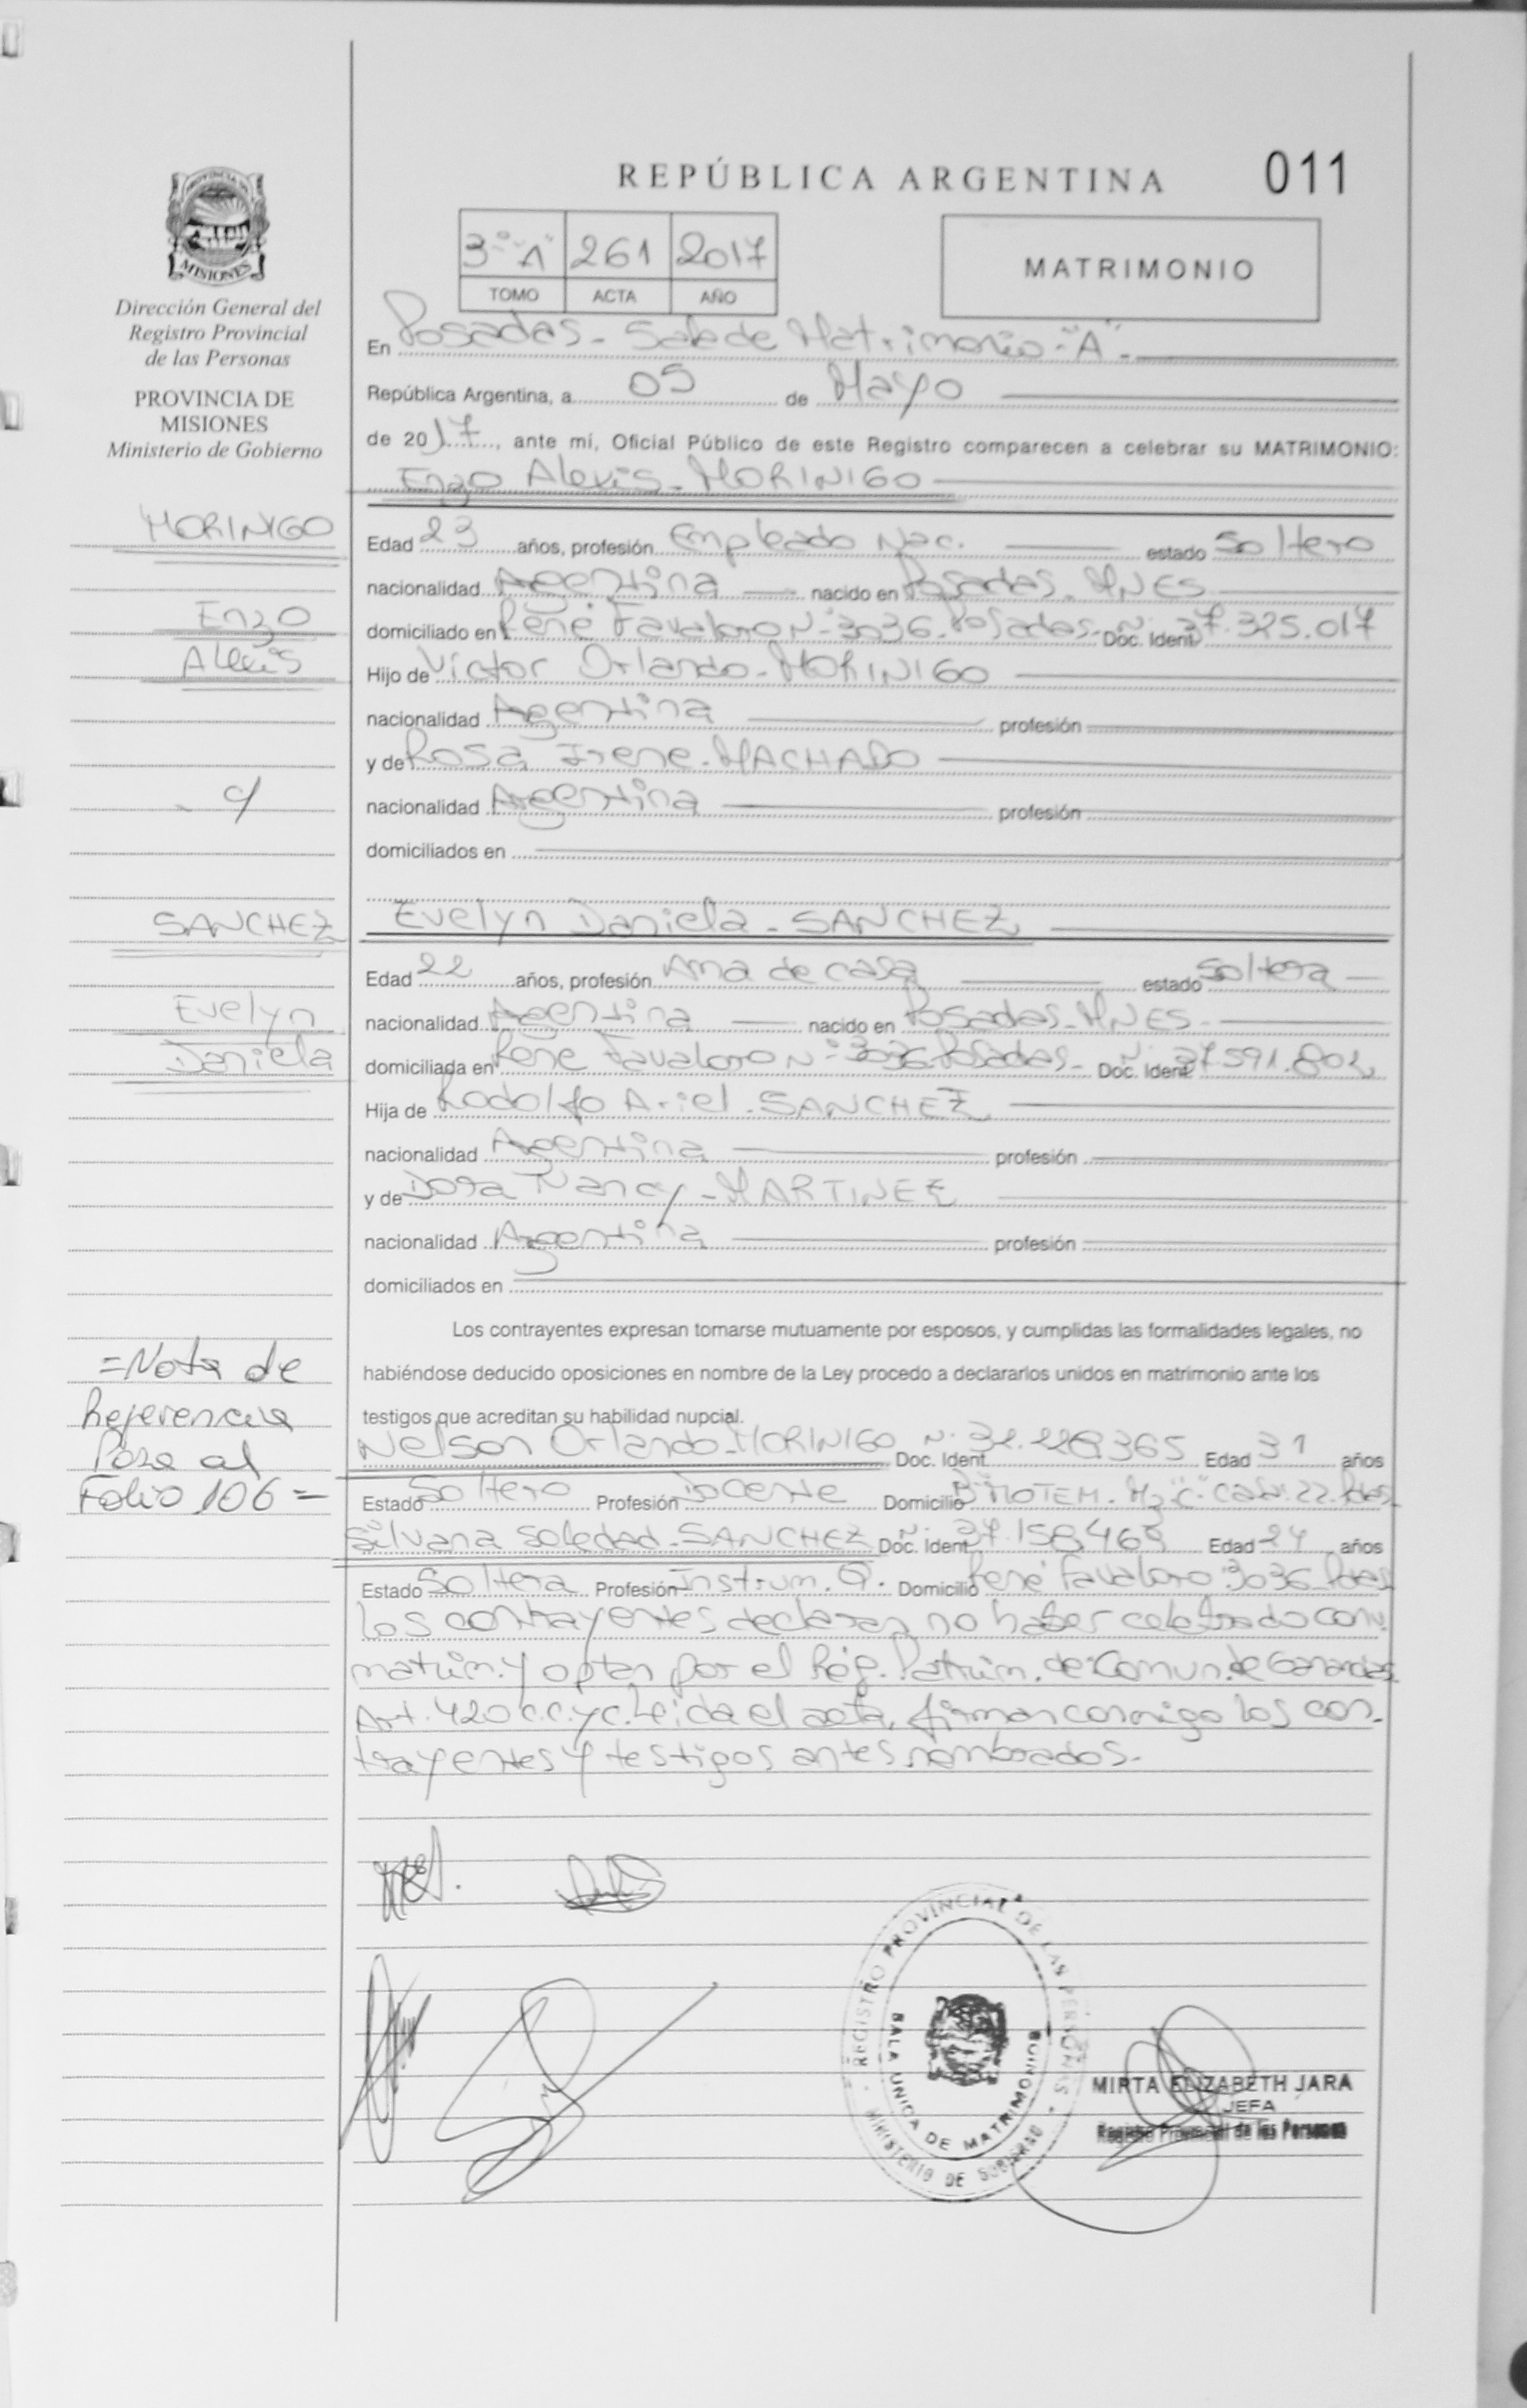 REPÚBLICA ARGENTINA 011
3º "A" 261 2017
TOMO ACTA AÑO
MATRIMONIO
PROVINCIA DE
MISIONES
Dirección General del
Registro Provincial
de las Personas
PROVINCIA DE
MISIONES
Ministerio de Gobierno
En Posadas - Sala de Matrimonio - "A" -
República Argentina, a 05 de Mayo
de 2017, ante mí, Oficial Público de este Registro comparecen a celebrar su MATRIMONIO:
Enzo Alexis - MORINIGO
MORINIGO
Enzo
Alexis
c/
SANCHEZ
Evelyn
Daniela
Edad 23 años, profesión Empleado Nac. estado Soltero
nacionalidad Argentina nacido en Posadas - MNES
domiciliado en René Favaloro Nº 3036 - Posadas - Doc. Ident. Nº 37.325.017
Hijo de Victor Orlando - MORINIGO
nacionalidad Argentina profesión
y de Rosa Irene - MACHADO
nacionalidad Argentina profesión
domiciliados en
Evelyn Daniela - SANCHEZ
Edad 22 años, profesión Ama de casa estado Soltera
nacionalidad Argentina nacido en Posadas - MNES -
domiciliada en René Favaloro Nº 3036 Posadas - Doc. Ident. Nº 37.591.802
Hija de Rodolfo Ariel - SANCHEZ
nacionalidad Argentina profesión
y de Dora Nancy - MARTINEZ
nacionalidad Argentina profesión
domiciliados en
Los contrayentes expresan tomarse mutuamente por esposos, y cumplidas las formalidades legales, no
habiéndose deducido oposiciones en nombre de la Ley procedo a declararlos unidos en matrimonio ante los
testigos que acreditan su habilidad nupcial.
=Nota de
Referencia
Pase al
Folio 106=
Nelson Orlando - MORINIGO Doc. Ident. Nº Edad 31 años
Estado Soltero Profesión Docente Domicilio Mz "C" Casa 22 Pdas
Silvana Soledad - SANCHEZ Doc. Ident. Nº 37.158.468 Edad 24 años
Estado Soltera Profesión Instrum. Q. Domicilio René Favaloro 3036 Pdas
Los contrayentes declaran no haber celebrado conv.
matrim. y optan por el Rég. Patrim. de Comun. de Ganancias
Art. 420 C.C. y C. Leida el acta, firman conmigo los con-
trayentes y testigos antes nombrados.-
REGISTRO PROVINCIAL DE LAS PERSONAS
SALA UNICA DE MATRIMONIOS
MINISTERIO DE GOBIERNO
MIRTA ELIZABETH JARA
JEFA
Registro Provincial de las Personas